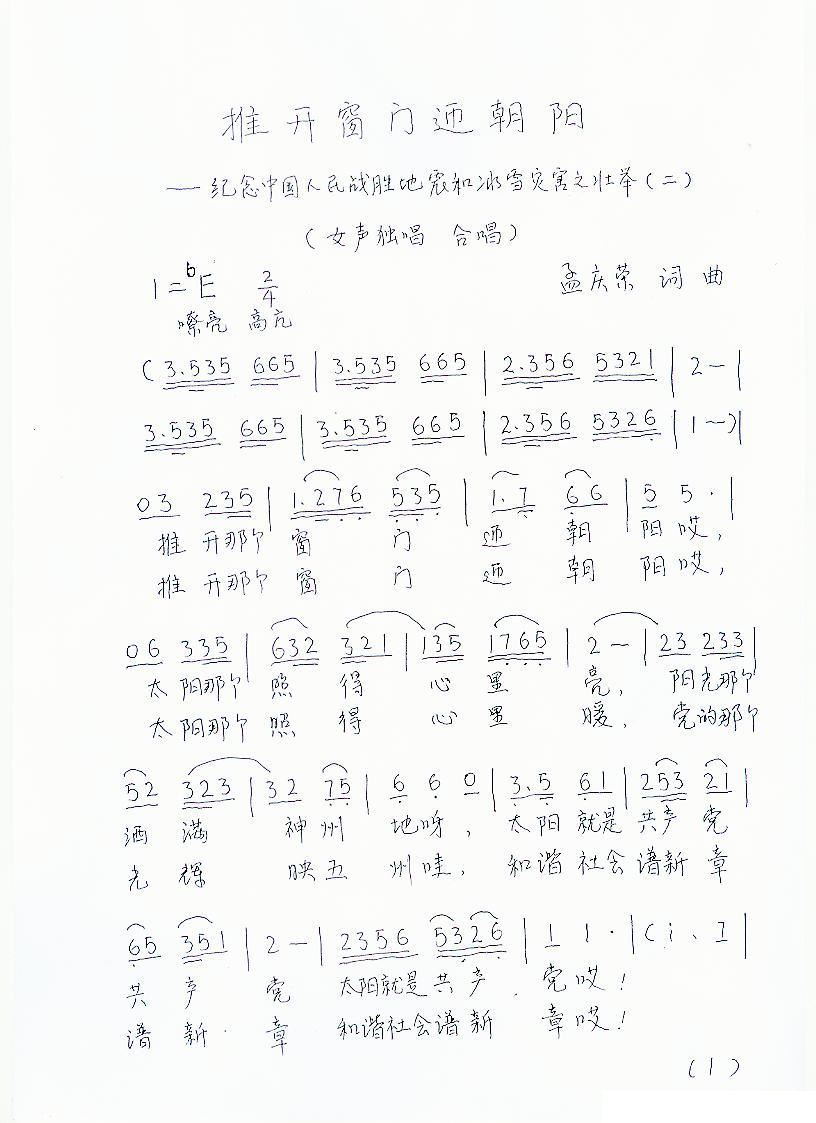 推开窗门迊朝阳
——纪念中国人民战胜地震和冰雪灾害之壮举(二)
(女声独唱 合唱)
1=bE 2/4 孟庆荣 词 曲
嘹亮 高亢
(3.535 665 | 3.535 665 | 2.356 5321 | 2 - |
3.535 665 | 3.535 665 | 2.356 5326 | 1 - )|
03 235 | 1.276 535 | 1.7 66 | 5 5. |
推 开那个 窗 门 迊 朝 阳 哎,
推 开那个 窗 门 迊 朝 阳 哎,
06 335 | 632 321 | 135 1765 | 2 - | 23 233 |
太 阳那个 照 得 心 里 亮, 阳光那个
太 阳那个 照 得 心 里 暖, 党的那个
52 323 | 32 75 | 6 6 0 | 3.5 61 | 253 21 |
洒 满 神州 地呀, 太阳 就是 共产 党
光 辉 映五 州哇, 和谐 社会 谱新 章
65 351 | 2 - | 2356 5326 | 1 1. | (i、 I |
共 产 党 太阳就是 共产 党哎!
谱 新 章 和谐社会 谱新 章哎!
(1)